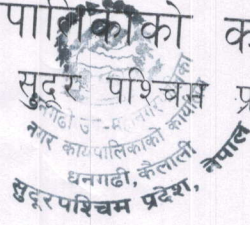 पालिकाको क
सुदूर पश्चिम प्र
धनगढी उ
नगर कार्यपालिकाको कार्यालय
धनगढी, कैलाली
सुदूरपश्चिम प्रदेश, नेपाल